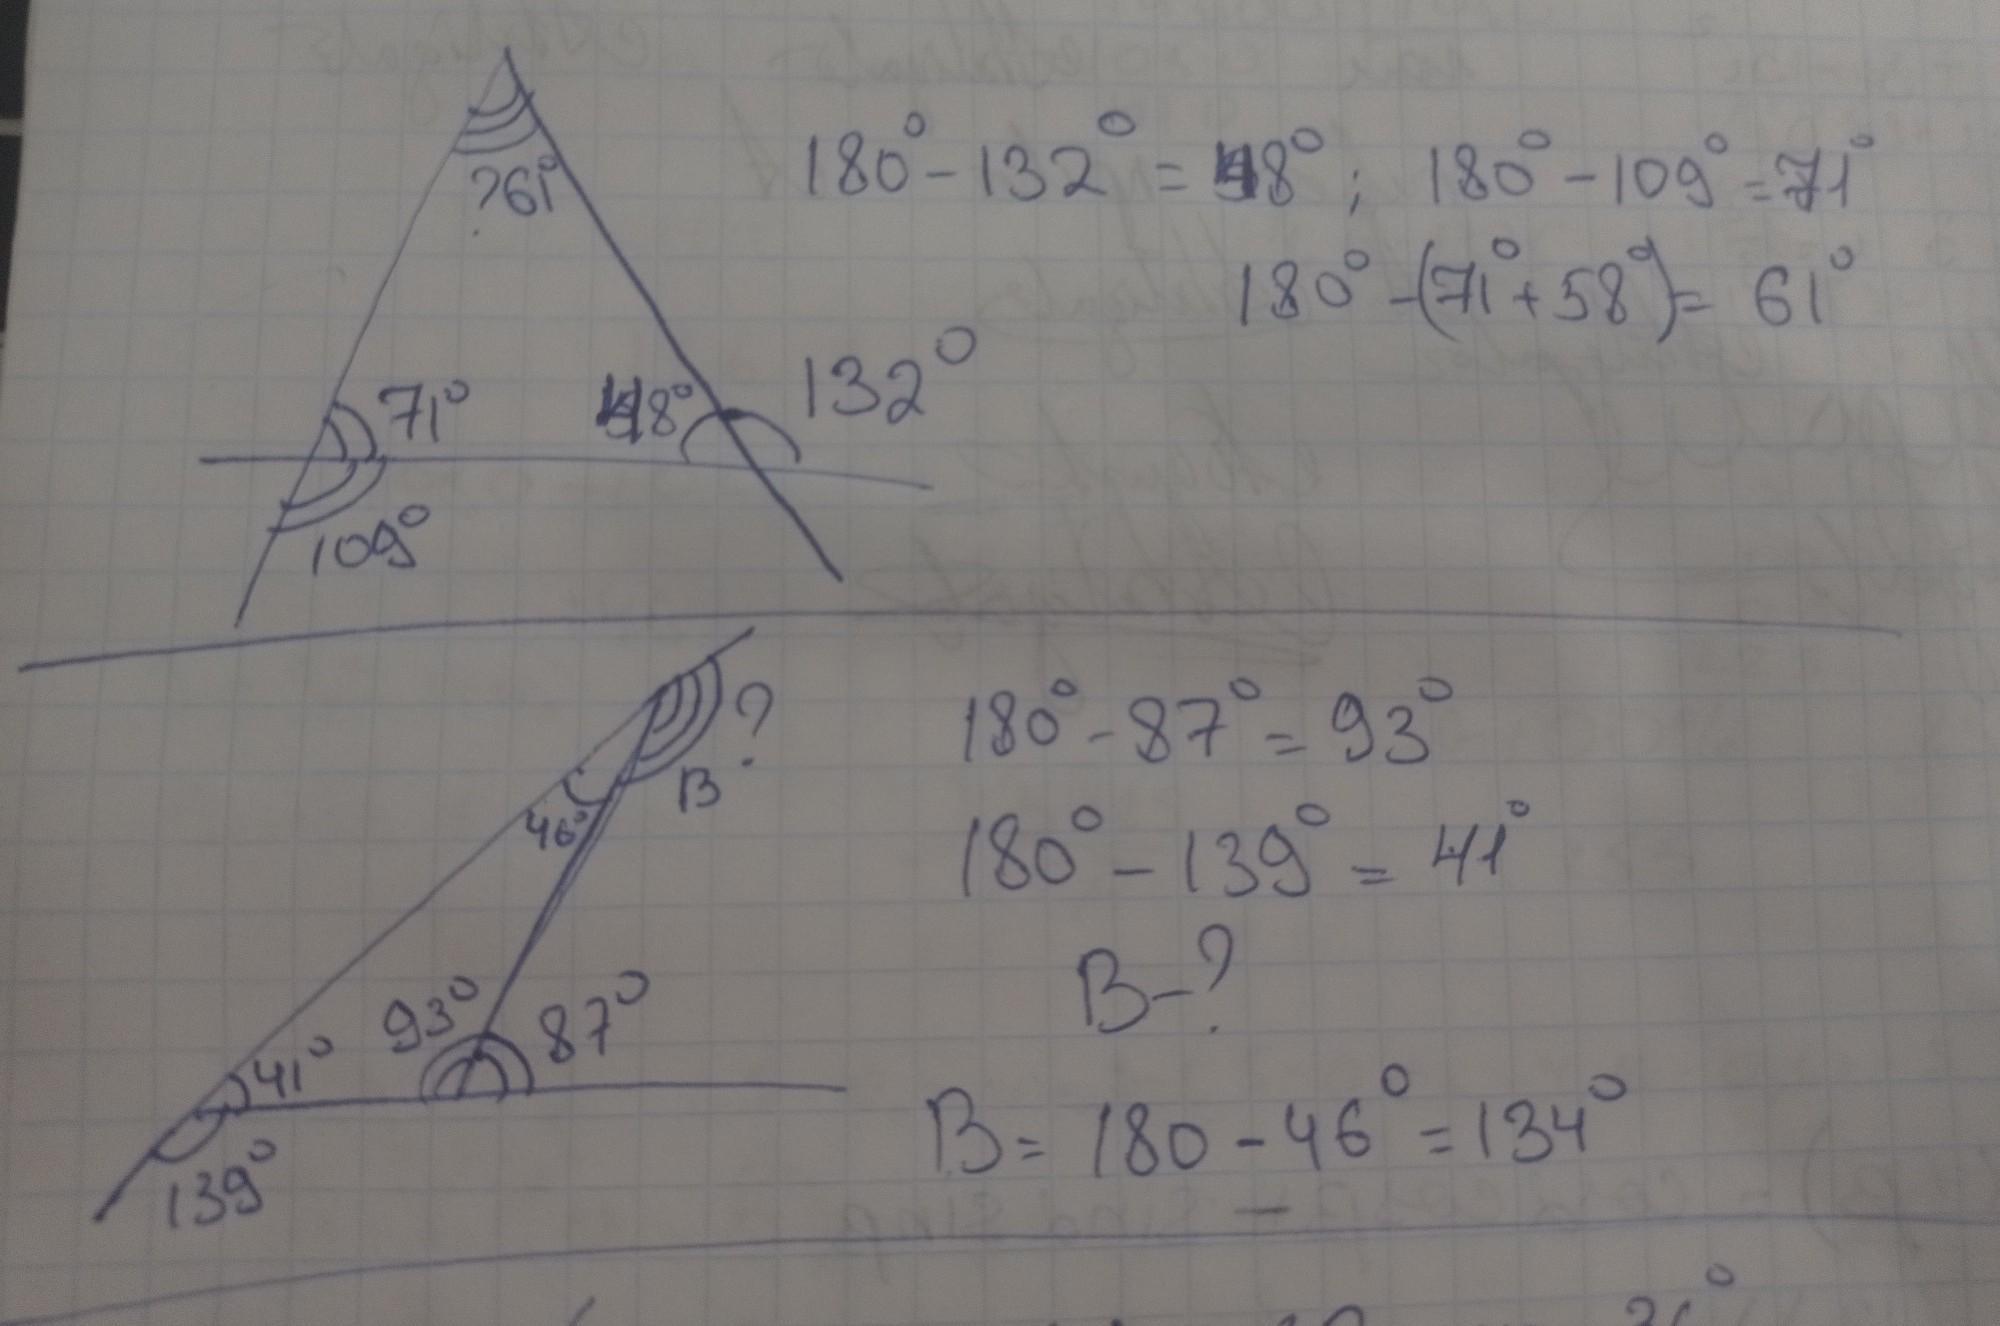 ?61°
180° - 132° = 48° ; 180° - 109° = 71°
180° - (71° + 58°) = 61°
71°
48°
132°
109°
?
B
46°
180° - 87° = 93°
180° - 139° = 41°
B - ?
93°
87°
41°
139°
B = 180 - 46° = 134°